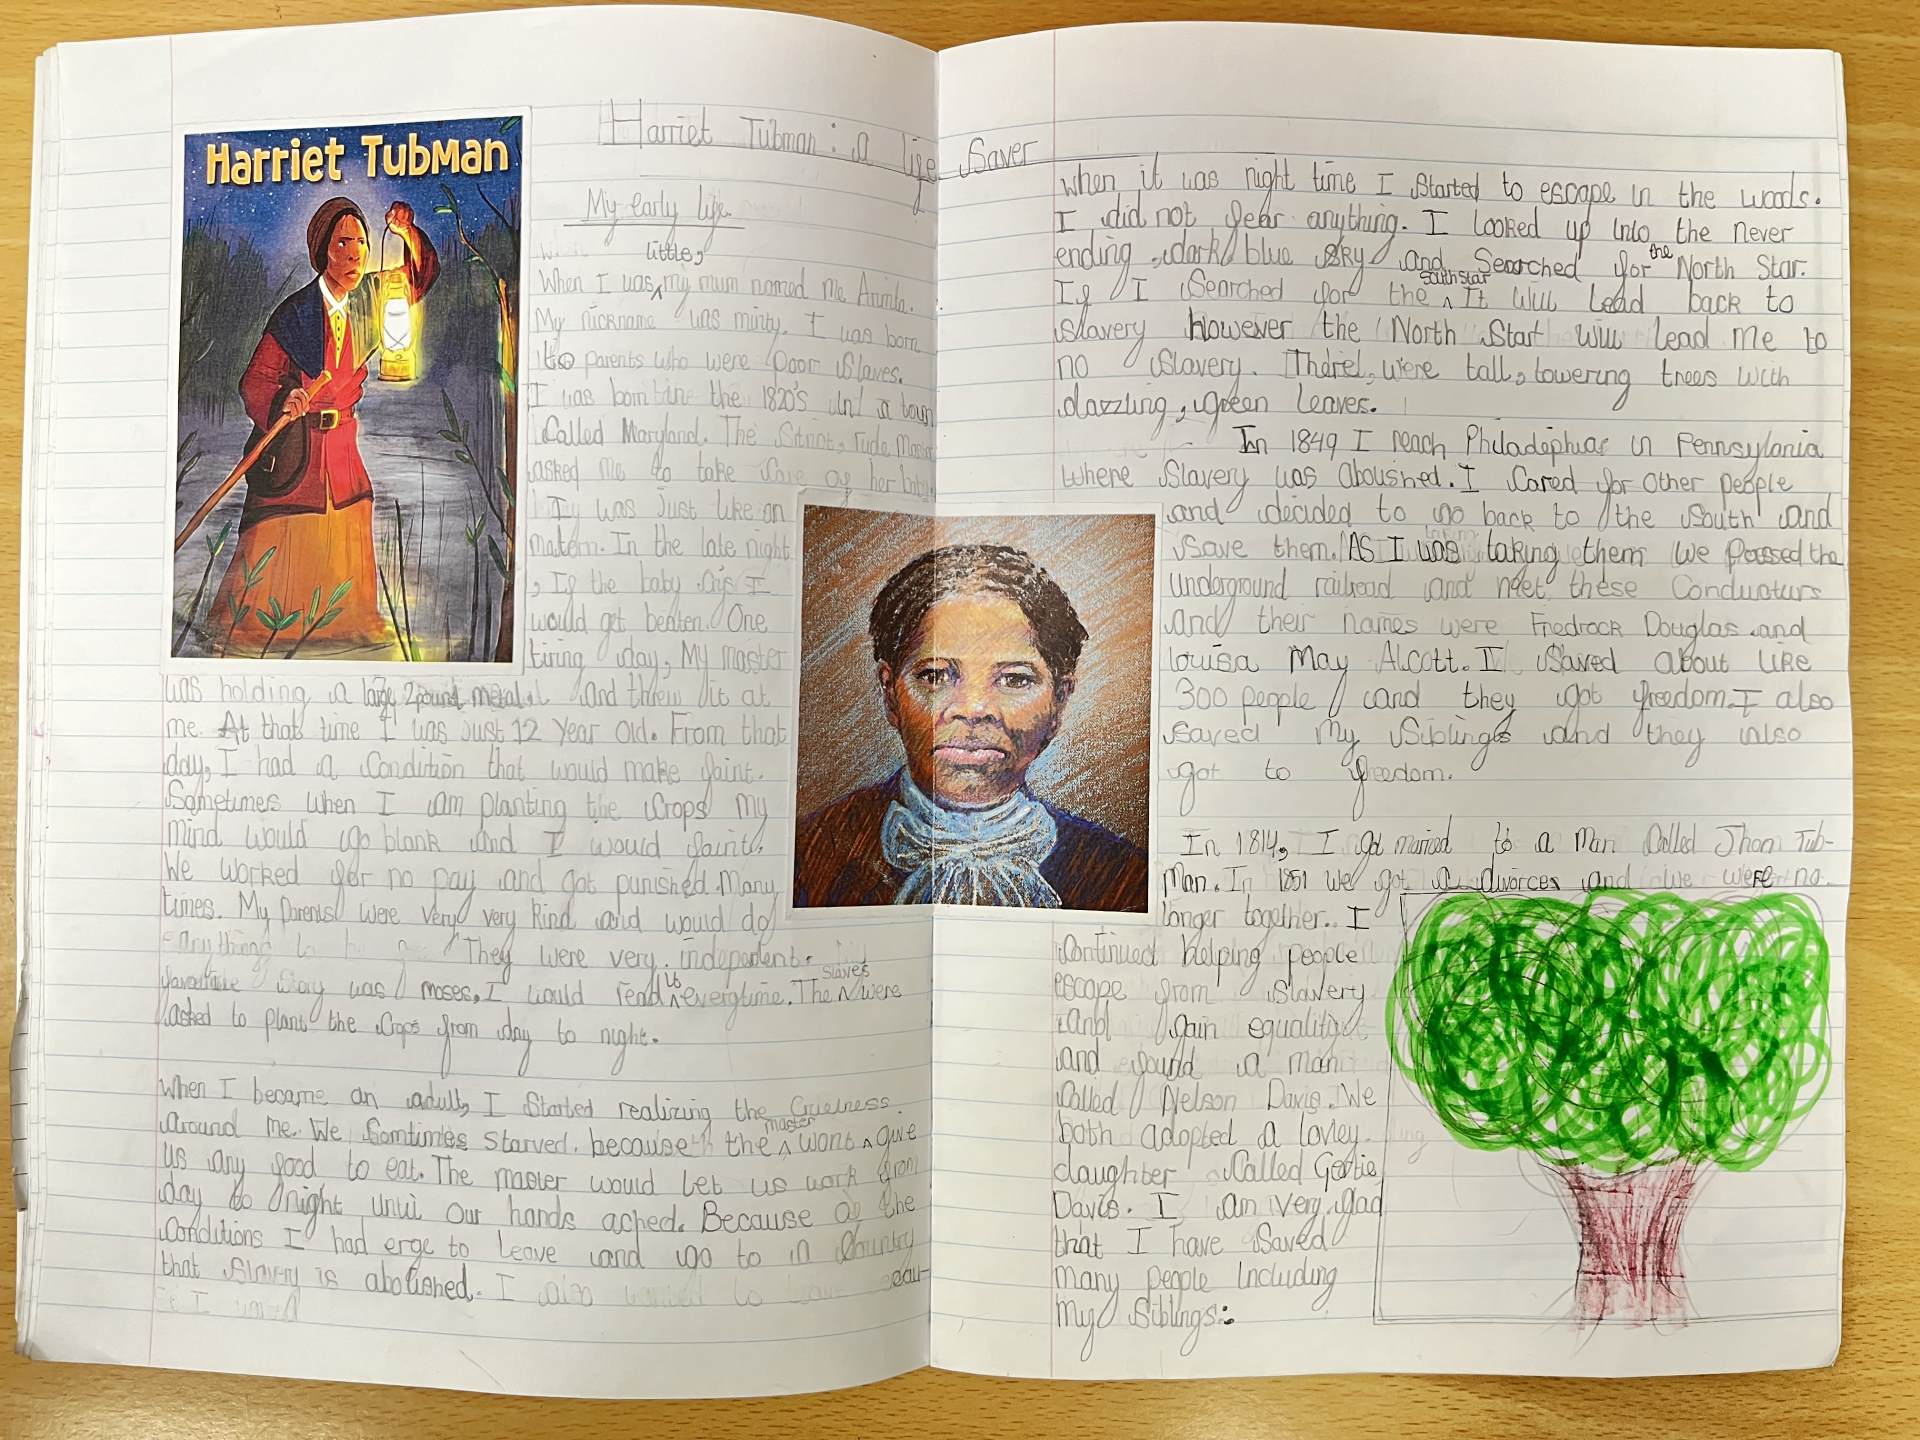 Harriet Tubman
Harriet Tubman: a life saver
My early life.
little,
When I was my mum named me Aminta.
My nickname was minty. I was born
to parents who were poor slaves.
I was born in the 1820's in a town
Called Maryland. The Strict, rude Master
asked me to take care of her baby.
I was just like an
matern. In the late night
, If the baby crys I
would get beaten. One
tiring day, My master
was holding a large 2pound metal and threw it at
me. At that time I was just 12 Year old. From that
day, I had a Condition that would make faint.
Sometimes when I am planting the crops my
mind would go blank and I would faint.
We worked for no pay and got punished many
times. My parents were very very kind and would do
anything They were very independent.
favourite story was moses, I would read it everytime. The slaves were
asked to plant the crops from day to night.
When I became an adult, I started realizing the Cruelness
around me. We Somtimes starved. because the master wont give
us any food to eat. The master would let us work from
day to night until our hands ached. Because of the
conditions I had erge to leave and go to a Country
that slavery is abolished. I also wanted to
When it was night time I started to escape in the woods.
I did not fear anything. I looked up into the never
ending, dark blue sky and Searched for the North Star.
If I Searched for the south star It will lead back to
slavery However the North Start will lead me to
no slavery. There, were tall, towering trees with
dazzling, green leaves.
In 1849 I reach Philadephia in Pennsylania
where slavery was aboushed. I cared for other people
and decided to go back to the South and
save them. As I was taking them we passed the
underground railroad and meet these Conductors
and their names were Fredrock Douglas and
louisa May Alcott. I saved about like
300 people and they got freedom. I also
saved my siblings and they also
got to freedom.
In 1814, I got married to a man called Jhon Tub-
man. In 1851 we got a divorces and we were no
longer together. I
continued helping people
escape from slavery
and gain equality
and found a man
called Nelson Davis. We
both adopted a lovley
daughter called Gertie
Davis. I am very glad
that I have saved
many people including
my siblings.